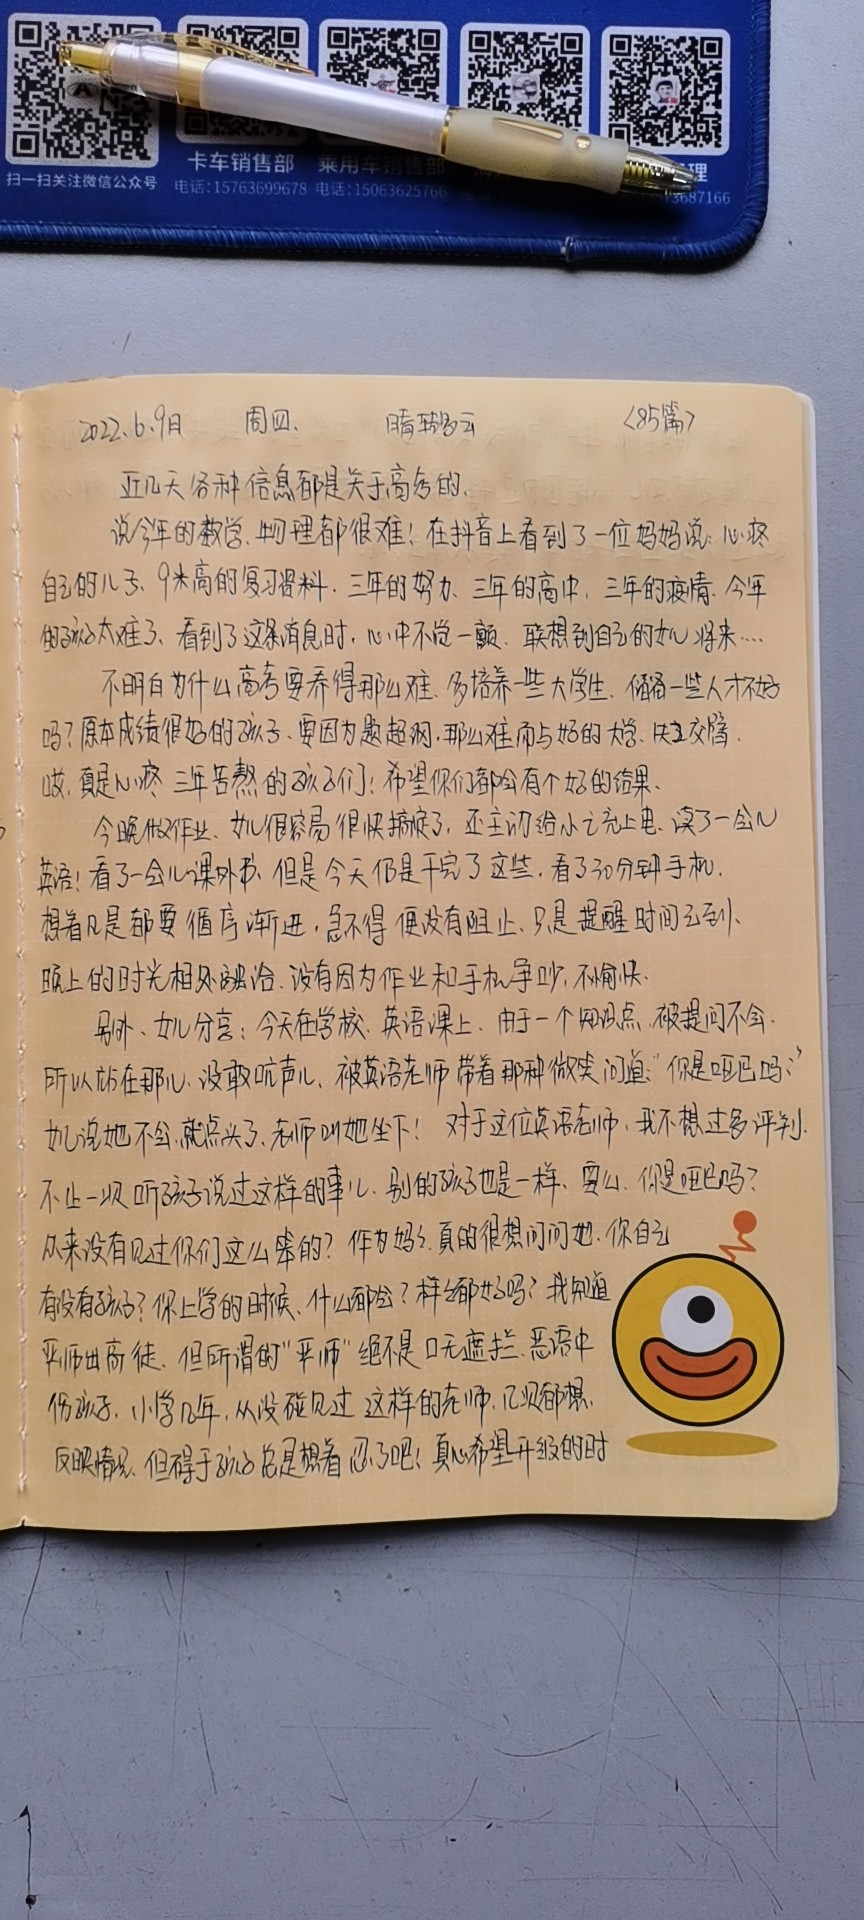 卡车销售部 乘用车销售部 理
扫一扫关注微信公众号 电话:15763699678 电话:15063625766 3687166
2022.6.9日 周四. 晴转多云 〈85篇〉
这几天各种信息都是关于高考的.
说今年的数学、物理都很难！在抖音上看到了一位妈妈说：心疼
自己的儿子、9米高的复习资料．三年的努力、三年的高中，三年的疫情、今年
的孩子太难了、看到了这条消息时，心中不觉一颤、联想到自己的女儿将来……
不明白为什么高考要弄得那么难、多培养一些大学生、储备一些人才不好
吗？原本成绩很好的孩子、要因为题超纲，那么难而与好的大学、失之交臂．
哎，真是心疼 三年苦熬的孩子们！希望你们都会有个好的结果、
今晚做作业、女儿很容易很快搞定了，还主动给小飞充上电、读了一会儿
英语！看了一会儿课外书、但是今天仍是干完了这些，看了30分钟手机．
想着凡是都要循序渐进，急不得 便没有阻止、只是提醒时间已到、
晚上的时光相处融洽、没有因为作业和手机争吵，不愉快．
另外、女儿分享：今天在学校．英语课上、由于一个知识点，被提问不会．
所以站在那儿、没敢吭声儿、被英语老师带着那种微笑问道：“你是哑巴吗？”
女儿说她不会，就点头了、老师叫她坐下！ 对于这位英语老师，我不想过多评判．
不止一次听孩子说过这样的事儿、别的孩子也是一样、要么、你是哑巴吗？
从来没有见过你们这么笨的？作为妈妈、真的很想问问她．你自己
有没有孩子？你上学的时候、什么都会？样样都好吗？我知道
严师出高徒、但所谓的“严师”绝不是口无遮拦、恶语中
伤孩子．小学几年，从没碰见过 这样的老师．几次都想．
反映情况、但碍于孩子总是想着 忍了吧！真心希望升级的时